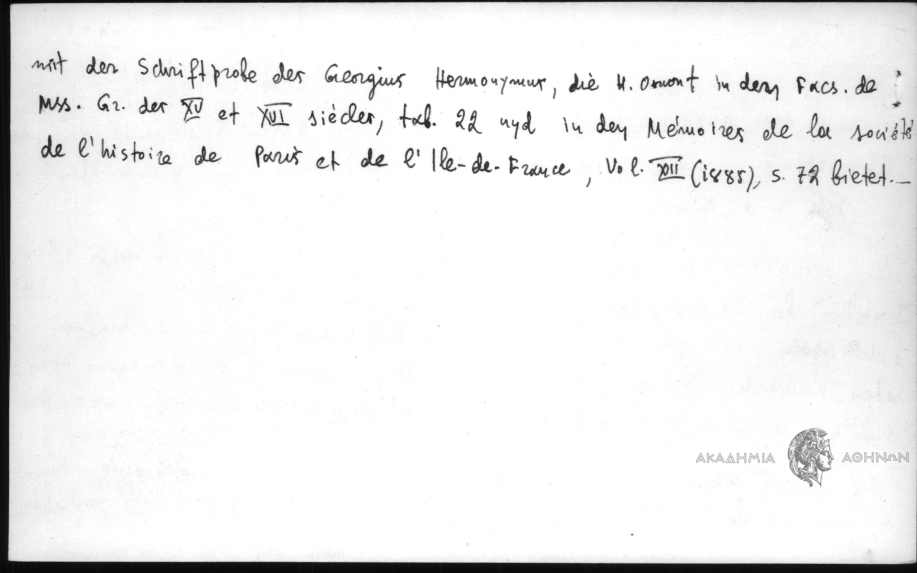 mit der Schriftprobe des Georgius Hermonymus, die H. Omont in den Facs. de
Mss. Gr. des XV et XVI siècles, tab. 22 und in den Mémoires de la société
de l'histoire de Paris et de l'Ile-de-France, Vol. XII (1885), S. 72 bietet.—
ΑΚΑΔΗΜΙΑ ΑΘΗΝΩΝ